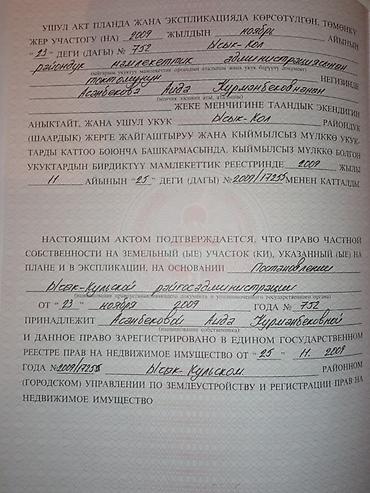 УШУЛ АКТ ПЛАНДА ЖАНА ЭКСПЛИКАЦИЯДА КӨРСӨТҮЛГӨН, ТӨМӨНКҮ
ЖЕР УЧАСТОГУ (НА) 2009 ЖЫЛДЫН ноябрь АЙЫНЫН
"23" ДЕГИ (ДАГЫ) № 752 Ысык-Кол
райондук мамлекеттик администрациясынын
токтомунун НЕГИЗИНДЕ
Асанбекова Аида Курманбековнанын
(менчик ээсинин аты, аталышы)
ЖЕКЕ МЕНЧИГИНЕ ТААНДЫК ЭКЕНДИГИН
АНЫКТАЙТ, ЖАНА УШУЛ УКУК Ысык-Кол РАЙОНДУК
(ШААРДЫК) ЖЕРГЕ ЖАЙГАШТЫРУУ ЖАНА КЫЙМЫЛСЫЗ МҮЛККӨ УКУК-
ТАРДЫ КАТТОО БОЮНЧА БАШКАРМАСЫНДА, КЫЙМЫЛСЫЗ МҮЛККӨ БОЛГОН
УКУКТАРДЫН БИРДИКТҮҮ МАМЛЕКЕТТИК РЕЕСТРИНДЕ 2009 ЖЫЛЫ
11 АЙЫНЫН "25" ДЕГИ (ДАГЫ) № 2009/17255 МЕНЕН КАТТАЛДЫ
НАСТОЯЩИМ АКТОМ ПОДТВЕРЖДАЕТСЯ, ЧТО ПРАВО ЧАСТНОЙ
СОБСТВЕННОСТИ НА ЗЕМЕЛЬНЫЙ (ЫЕ) УЧАСТОК (КИ), УКАЗАННЫЙ (ЫЕ) НА
ПЛАНЕ И В ЭКСПЛИКАЦИИ, НА ОСНОВАНИИ Постановления
Ысык-Кульской райгосадминистрации
(наименование документа и уполномоченного государственного органа)
ОТ "23" ноября 2009 ГОДА № 752
ПРИНАДЛЕЖИТ Асанбековой Аида Курманбековной
(наименование собственника)
И ДАННОЕ ПРАВО ЗАРЕГИСТРИРОВАНО В ЕДИНОМ ГОСУДАРСТВЕННОМ
РЕЕСТРЕ ПРАВ НА НЕДВИЖИМОЕ ИМУЩЕСТВО ОТ "25" 11. 2009
ГОДА № 2009/17255 Ысык-Кульском РАЙОННОМ
(ГОРОДСКОМ) УПРАВЛЕНИИ ПО ЗЕМЛЕУСТРОЙСТВУ И РЕГИСТРАЦИИ ПРАВ НА
НЕДВИЖИМОЕ ИМУЩЕСТВО